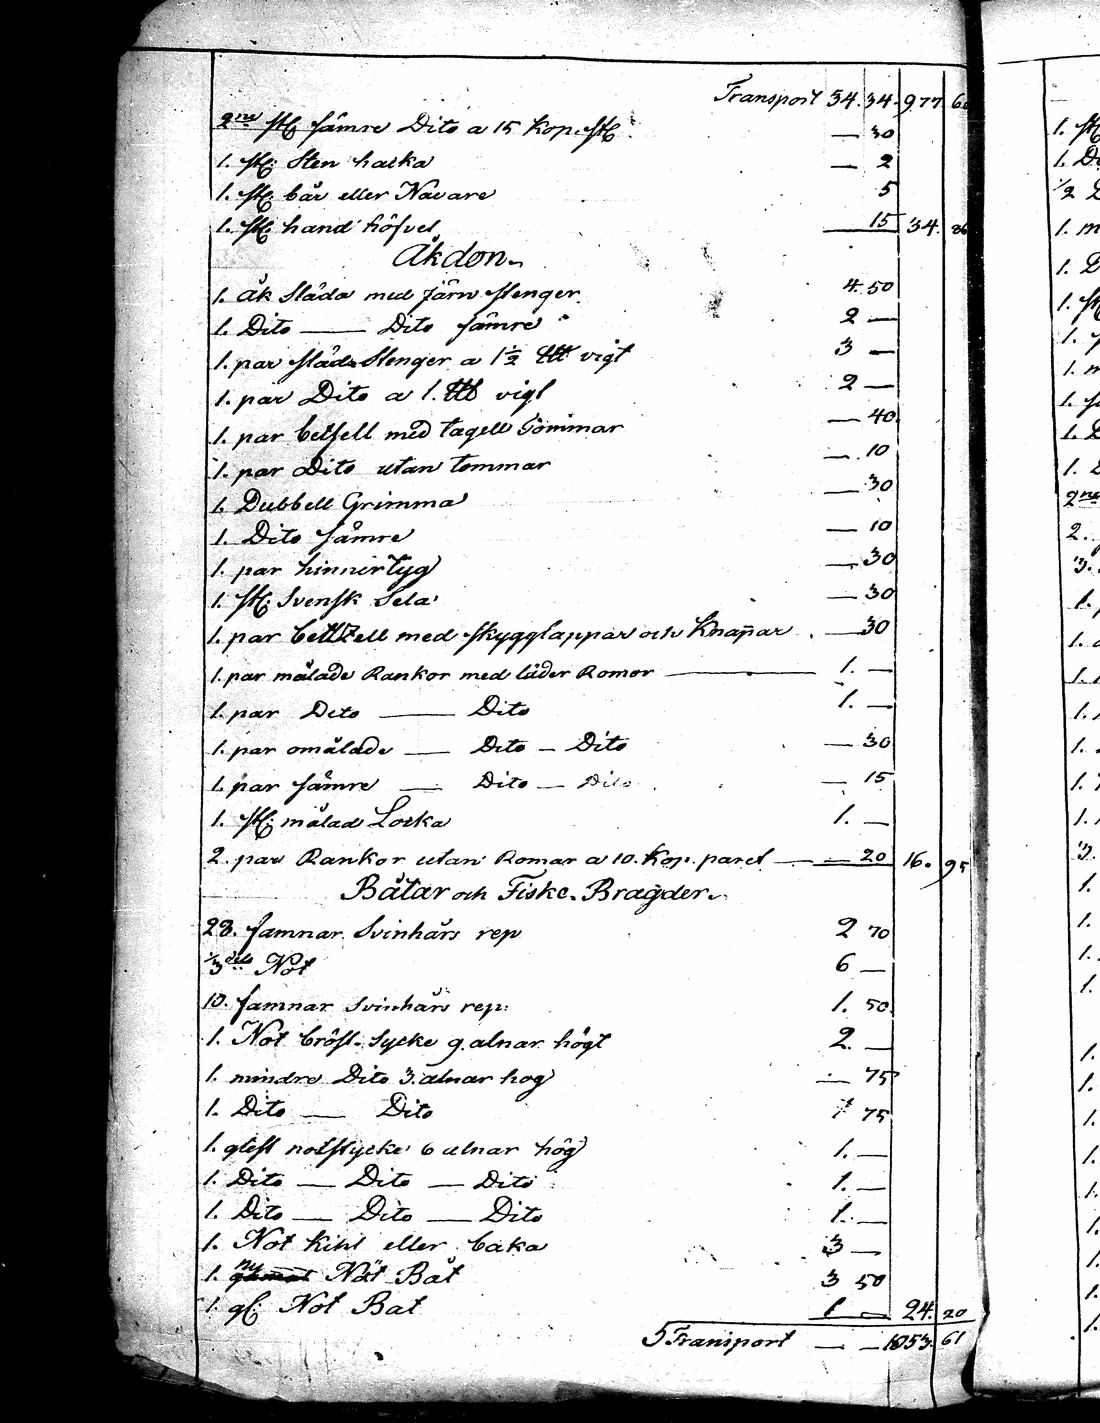 Transport 34. 34. 977 60
2ne st: sämre Dito a 15 Kop. st: — 30
1. st: Sten hacka — 2
1. st: bår eller Navare 5
1. st: hand höfvel 15 34. 86
Åkdon.
1. åk Släda med Järn Stenger 4. 50
1. Dito — Dito sämre 2 —
1. par Släd Stenger a 1½ ttt vigt 3 —
1. par Dito a 1. ttt vigt 2 —
1. par betsell med tagell Tömmar — 40.
1. par Dito utan tommar — 10
1. Dubbell Grimma — 30
1. Dito sämre — 10
1. par hinnirtyg — 30
1. st: Svensk Sela — 30
1. par betzell med skygglappar och Knappar — 30
1. par målade Rankor med läder Romor — 1. —
1. par Dito — Dito 1. —
1. par omålade — Dito — Dito — 30
1. par sämre — Dito — Dito — 15
1. st: målad Locka 1. —
2. par Rankor utan Romar a 10. Kop. paret — — 20 16. 95
Båtar och Fiske-Bragder.
28. famnar Svinhårs rep 2 70
⅓dels Not 6 —
10. famnar Svinhårs rep: 1. 50
1. Not bröst-Sycke 9. alnar högt 2. —
1. mindre Dito 3. alnar hog — 75
1. Dito — Dito 75
1. glest notstycke 6 alnar hög 1. —
1. Dito — Dito — Dito 1. —
1. Dito — Dito — Dito 1. —
1. Not Kihl eller baka 3 —
1. ny Nöt Båt 3 50
1. gl: Not Bat 1 — 24. 20
Transport — — 1053. 61